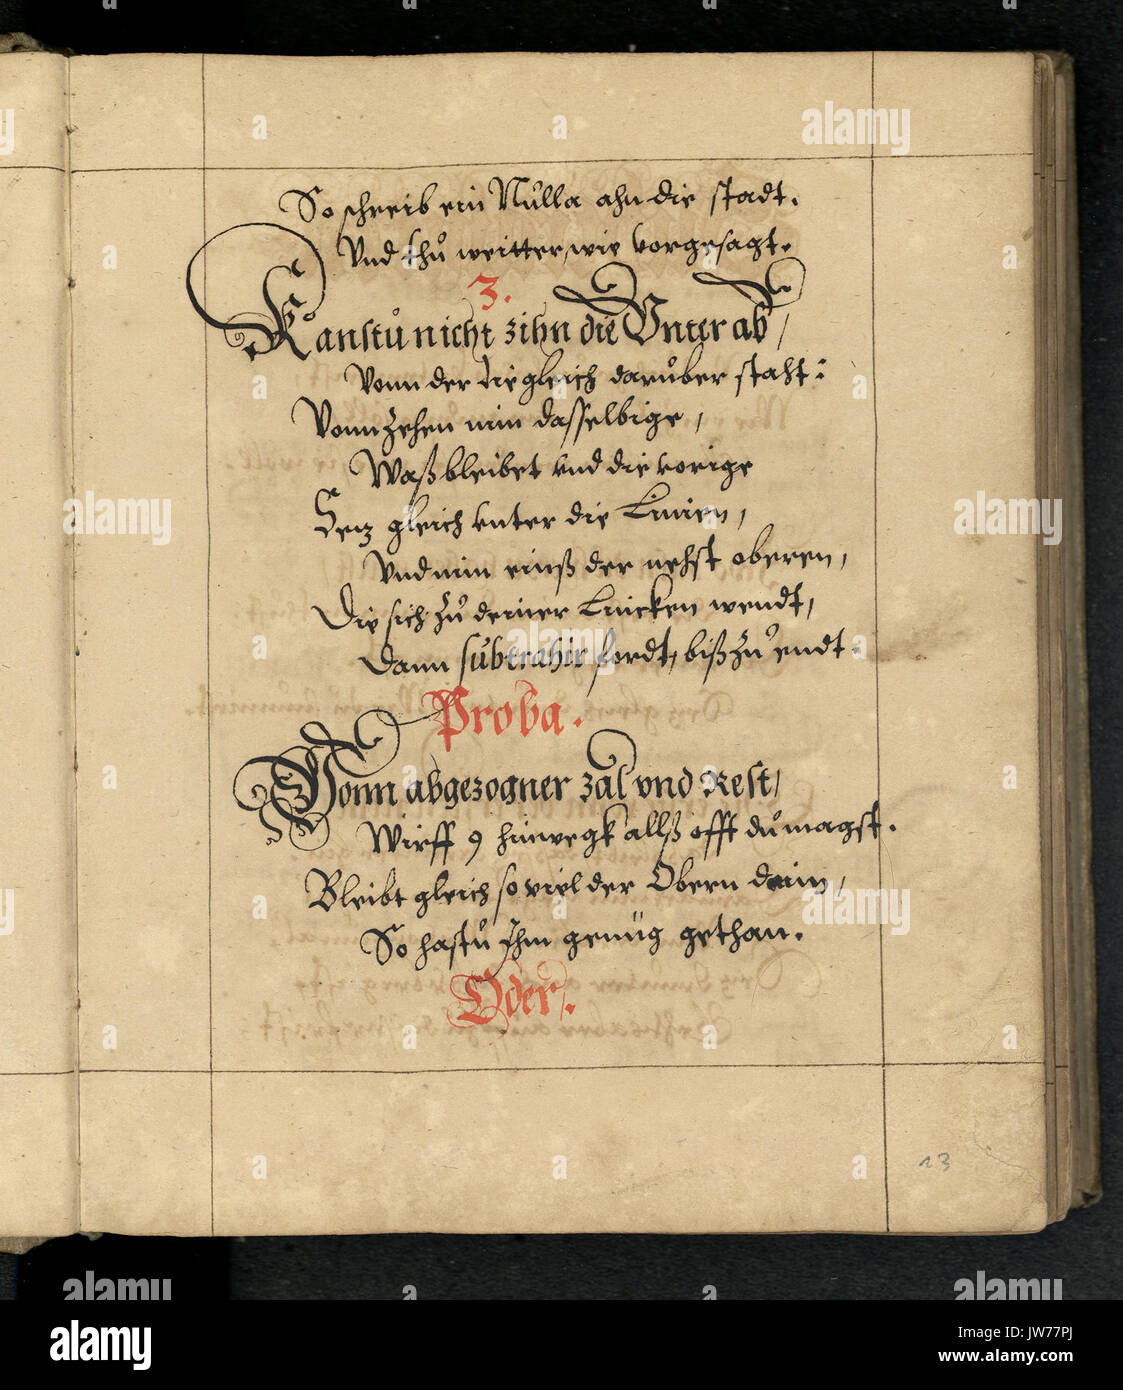 So schreib ein Nulla ahn die stadt.
Vnd thů weitter, wie vorgesagt.
3.
Kanstů nicht zihn die Vnter ab /
Vonn der die gleich darůber staht :
Vonn Zehen nim dasselbige /
Waß bleibet vnd die vorige
Setz gleich vnter die Linien /
Vnd nim einß der nehst oberen /
Die sich zů deiner Lincken wendt /
Dann subtrahir fordt, biß zů endt.
Proba.
Vonn abgezogner zal vnd Rest /
Wirff 9 hinwegk allß offt dů magst.
Bleibt gleich so viel der Obern drin /
So hastů Ihm genüg gethan.
Oder.
13
alamy
Image ID: JW77PJ
www.alamy.com